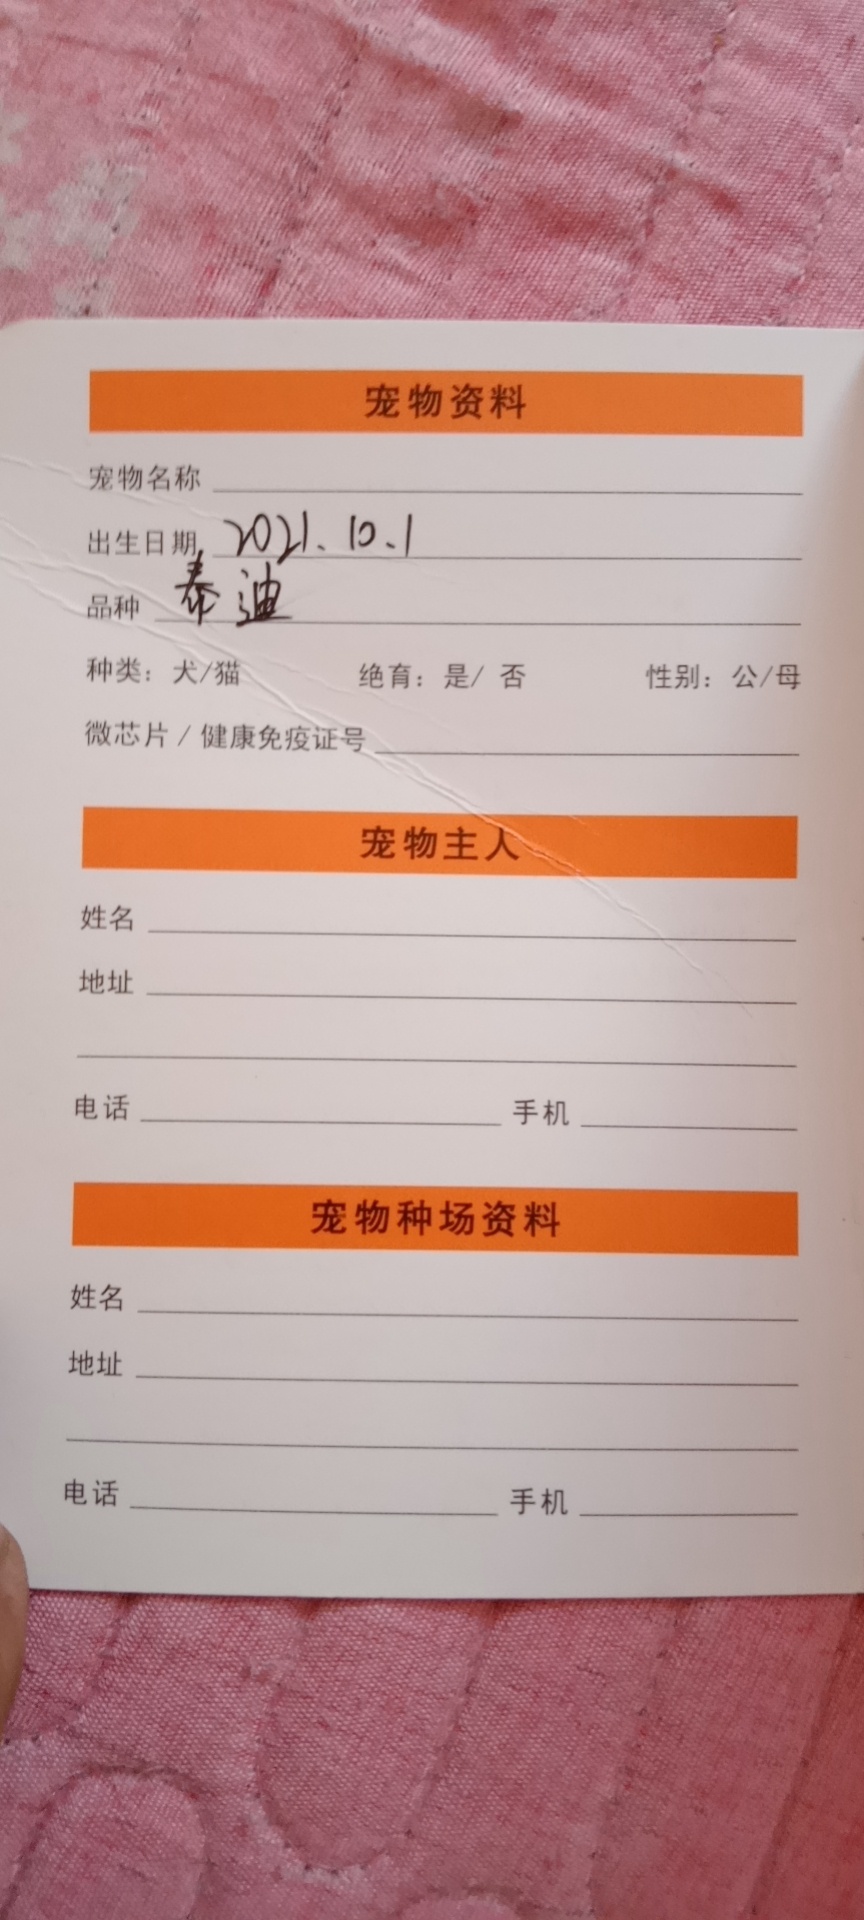 宠物资料
宠物名称
出生日期 2021.10.1
品种 泰迪
种类：犬/猫 绝育：是/ 否 性别：公/母
微芯片 / 健康免疫证号
宠物主人
姓名
地址
电话 手机
宠物种场资料
姓名
地址
电话 手机